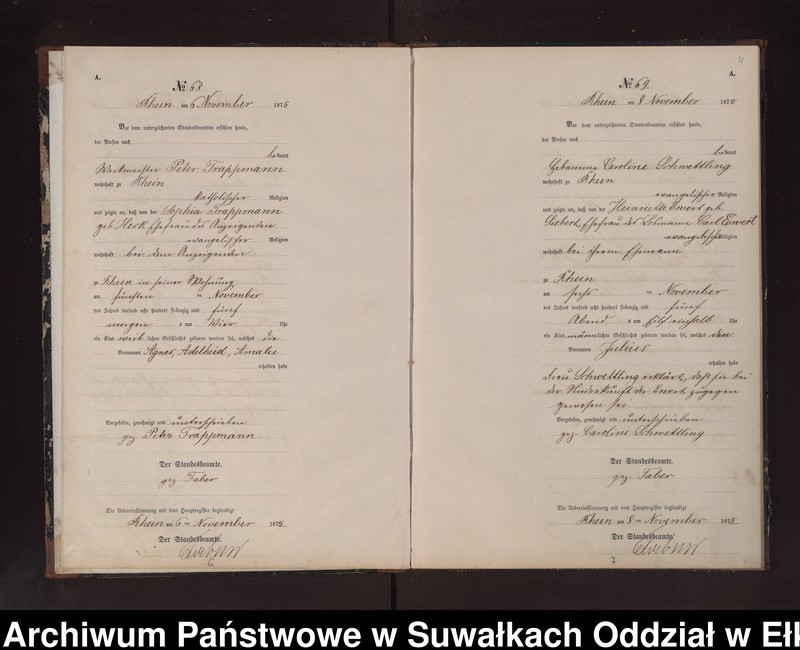 A.
№ 68
Rhein am 6 November 1875
Vor dem unterzeichneten Standesbeamten erschien heute,
der Person nach
bekannt
Werkmeister Peter Trappmann
wohnhaft zu Rhein
katholischer Religion
und zeigte an, daß von der Sophia Trappmann
geb Heck Ehefrau des Anzeigenden
evangelischer Religion
wohnhaft bei dem Anzeigenden
zu Rhein in seiner Wohnung
am fünften ten November
des Jahres tausend acht hundert siebenzig und fünf
morgen s um Uhr
ein Kind weib lichen Geschlechts geboren worden sei, welches die
Vornamen Agnes, Adelheid, Amalie
erhalten habe
Vorgelesen, genehmigt und unterschrieben
gez Peter Trappmann
Der Standesbeamte.
gez. Faber
Die Uebereinstimmung mit dem Hauptregister beglaubigt
Rhein am 6 ten November 1875
Der Standesbeamte.
4
№ 69.
A.
Rhein am 8 November 1875
Vor dem unterzeichneten Standesbeamten erschien heute,
der Person nach
bekannt
Hebamme Caroline Schwettling
wohnhaft zu Rhein
evangelischer Religion
und zeigte an, daß von der Henriette Ewert geb.
Siebert, Ehefrau des Losmann Carl Ewert
evangelischer Religion
wohnhaft bei ihrem Ehemanne
zu Rhein
am sechs ten November
des Jahres tausend acht hundert siebenzig und fünf
Abend s um Uhr
ein Kind männlichen Geschlechts geboren worden sei, welches den
Vornamen Julius
erhalten habe
Frau Schwettling erklärt, daß sie bei
der Niederkunft der Ewert zugegen
gewesen sei.
Vorgelesen, genehmigt und unterschrieben
gez. Caroline Schwettling
Der Standesbeamte.
gez. Faber
Die Uebereinstimmung mit dem Hauptregister beglaubigt
Rhein am 8 ten November 1875
Der Standesbeamte.
Archiwum Państwowe w Suwałkach Oddział w Ełk